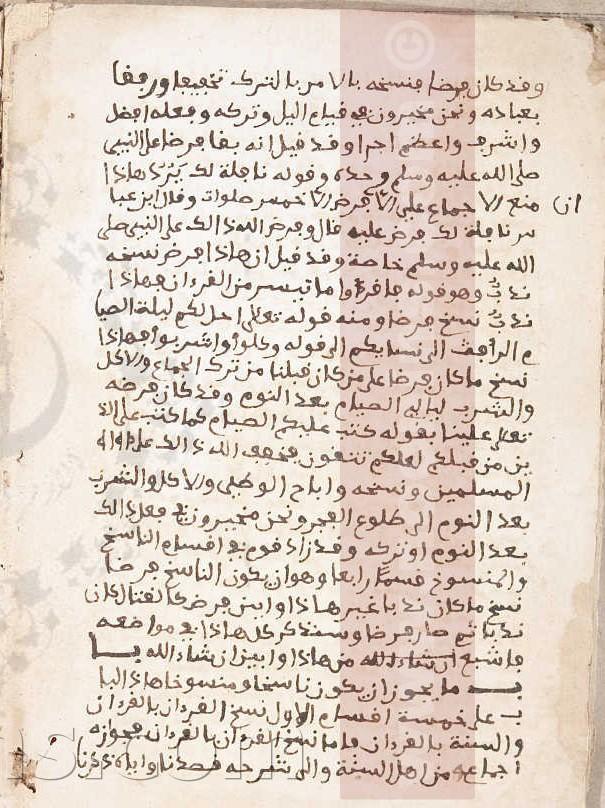 وقد كان فرضا فنسخه بالامر بالترك تخفيفا ورفقا
بعباده ونحن مخيرون في قيام اليل وتركه وفعله افضل
واشرف واعظم اجرا وقد قيل انه بقا فرضا على النبي
صلى الله عليه وسلم وحده وقوله نافلة لك يرد هاذا
منع الاجماع على الا فرض الا خمس صلوات وقال ابن عبا
ان
س نافلة لك فرض عليه قال وفرض الله ذالك على النبي صلى
الله عليه وسلم خاصة وقد قيل ان هاذا فرض نسخه
ندب وهو قوله فاقرءوا ما تيسر من القرءان فهاذا
ندب نسخ فرضا ومنه قوله تعالى احل لكم ليلة الصيا
م الرفث الى نسايكم الى قوله وكلوا واشربوا فهاذا
نسخ ما كان فرضا على من كان قبلنا من ترك الجماع والاكل
والشرب ليالي الصيام بعد النوم وقد كان فرضه
تعالى علينا بقوله كتب عليكم الصيام كما كتب على الذ
ين من قبلكم لعلكم تتقون فخفف الله ذالك على
المسلمين ونسخه واباح الوطي والاكل والشرب
بعد النوم الى طلوع الفجر ونحن مخيرون في فعل ذالك
بعد النوم او تركه وقد زاد قوم في اقسام الناسخ
والمنسوخ قسما رابعا وهو ان يكون الناسخ فرضا
نسخ ما كان ندبا غير هاذا وابين فرض كالقتال كان
ندبا ثم صار فرضا وسنذكر كل هاذا في مواضعه
فاشبع ان شاء الله من هاذا وابين ان شاء الله با
ب ما يجوز ان يكون ناسخا ومنسوخا هاذا البا
ب على خمسة اقسام الاول نسخ القرءان بالقرءان
والسنة بالقرءان فاما نسخ القرءان بالقرءان فجوازه
اجماع من اهل السنة والى شرحه قصدنا واياه ذكرنا